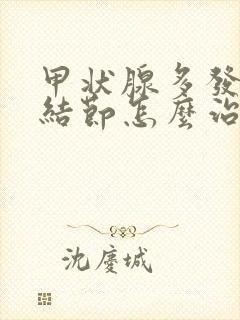 甲狀腺多發
結節怎麼治
沈慶城